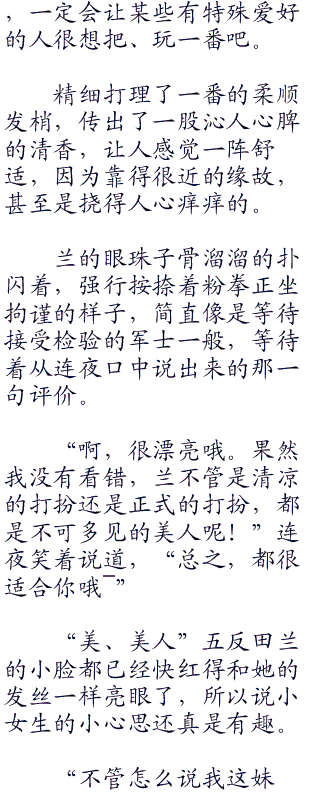 ，一定会让某些有特殊爱好
的人很想把、玩一番吧。
精细打理了一番的柔顺
发梢，传出了一股沁人心脾
的清香，让人感觉一阵舒
适，因为靠得很近的缘故，
甚至是挠得人心痒痒的。
兰的眼珠子骨溜溜的扑
闪着，强行按捺着粉拳正坐
拘谨的样子，简直像是等待
接受检验的军士一般，等待
着从连夜口中说出来的那一
句评价。
“啊，很漂亮哦。果然
我没有看错，兰不管是清凉
的打扮还是正式的打扮，都
是不可多见的美人呢！”连
夜笑着说道，“总之，都很
适合你哦¯”
“美、美人”五反田兰
的小脸都已经快红得和她的
发丝一样亮眼了，所以说小
女生的小心思还真是有趣。
“不管怎么说我这妹